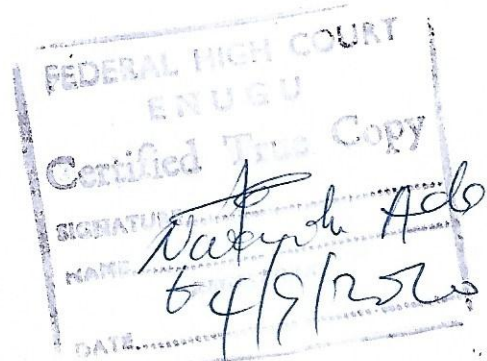 FEDERAL HIGH COURT
ENUGU
Certified True Copy
SIGNATURE
NAME Ado
DATE /9/2020